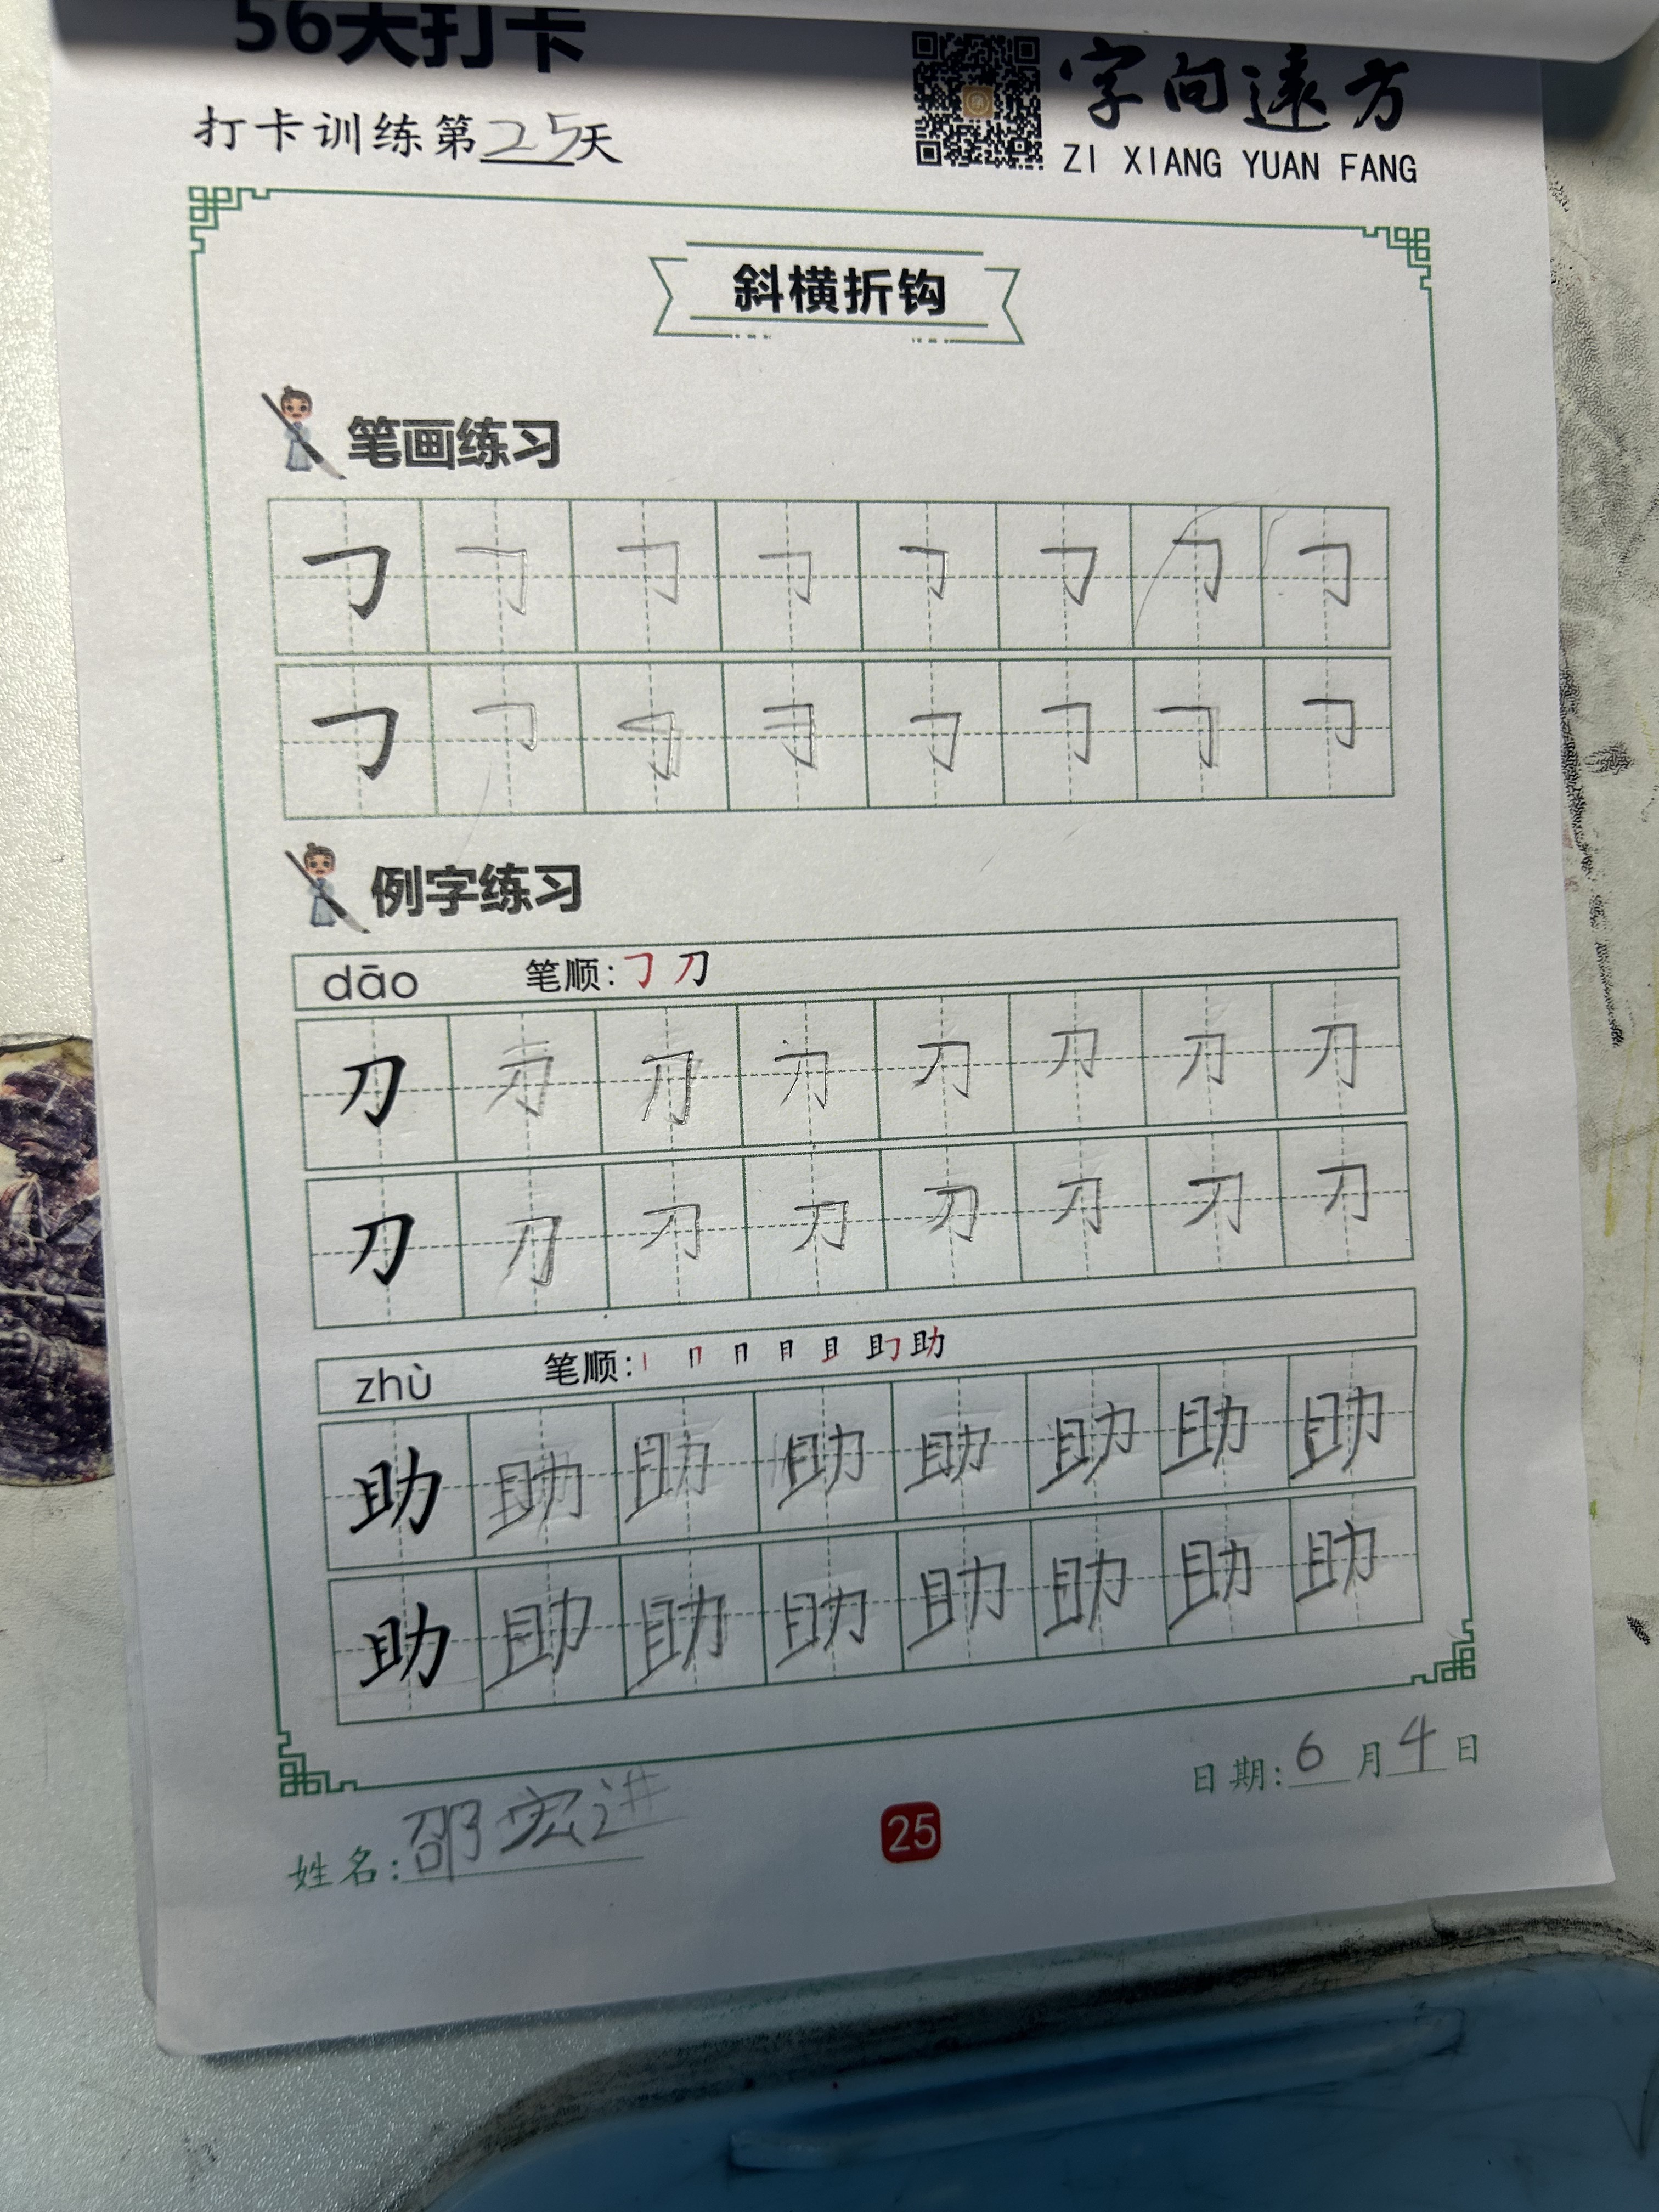 56天打卡
打卡训练第25天
字向远方
ZI XIANG YUAN FANG
斜横折钩
笔画练习
𠃌 𠃌 𠃌 𠃌 𠃌 𠃌 𠃌 𠃌
𠃌 𠃌 𠃌 𠃌 𠃌 𠃌 𠃌 𠃌
例字练习
dāo 笔顺:𠃌 刀
刀 刀 刀 刀 刀 刀 刀 刀
刀 刀 刀 刀 刀 刀 刀 刀
zhù 笔顺:丨 冂 冂 月 且 助 助
助 助 助 助 助 助 助 助
助 助 助 助 助 助 助 助
日期:6月4日
姓名:邵宏进
25